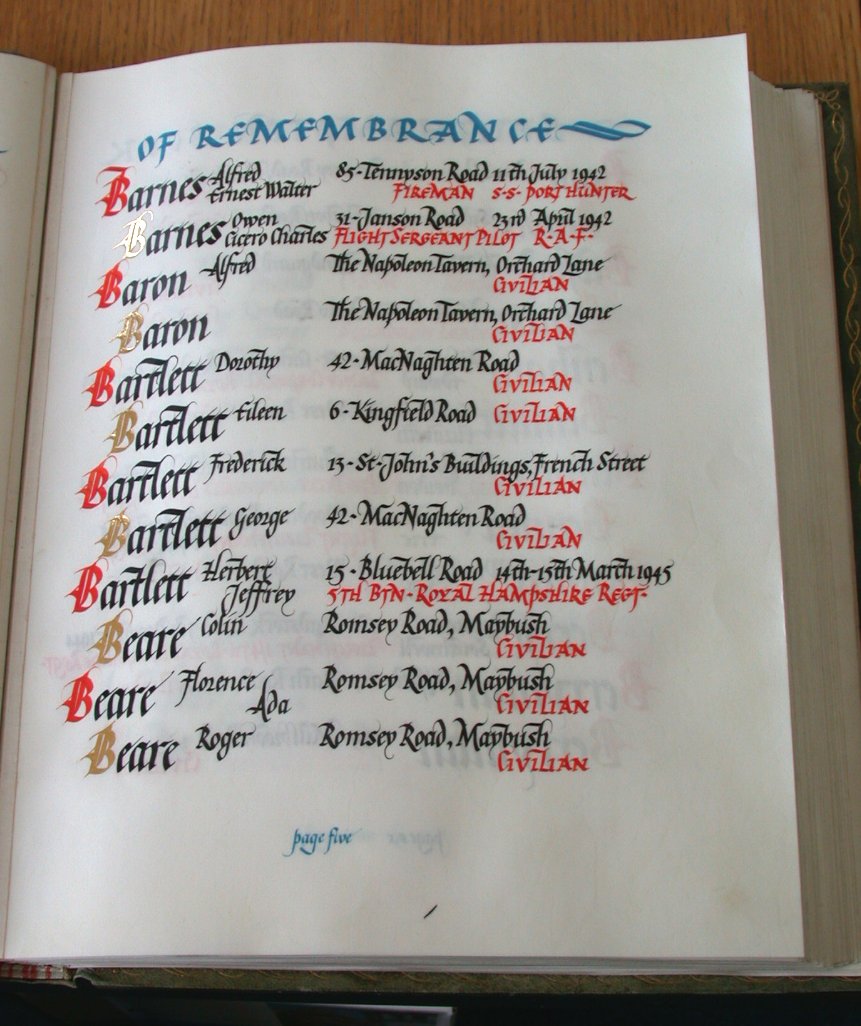 OF REMEMBRANCE
Barnes Alfred Ernest Walter 85·Tennyson Road 11th July 1942
FIREMAN S·S· PORT HUNTER
Barnes Owen Cicero Charles 31·Janson Road 23rd April 1942
FLIGHT SERGEANT PILOT R·A·F·
Baron Alfred The Napoleon Tavern, Orchard Lane
CIVILIAN
Baron The Napoleon Tavern, Orchard Lane
CIVILIAN
Bartlett Dorothy 42·MacNaghten Road
CIVILIAN
Bartlett Eileen 6·Kingfield Road CIVILIAN
Bartlett Frederick 13·St·John's Buildings, French Street
CIVILIAN
Bartlett George 42·MacNaghten Road
CIVILIAN
Bartlett Herbert Jeffrey 15·Bluebell Road 14th-15th March 1945
5TH BTN·ROYAL HAMPSHIRE REGT·
Beare Colin Romsey Road, Maybush
CIVILIAN
Beare Florence Ada Romsey Road, Maybush
CIVILIAN
Beare Roger Romsey Road, Maybush
CIVILIAN
page five